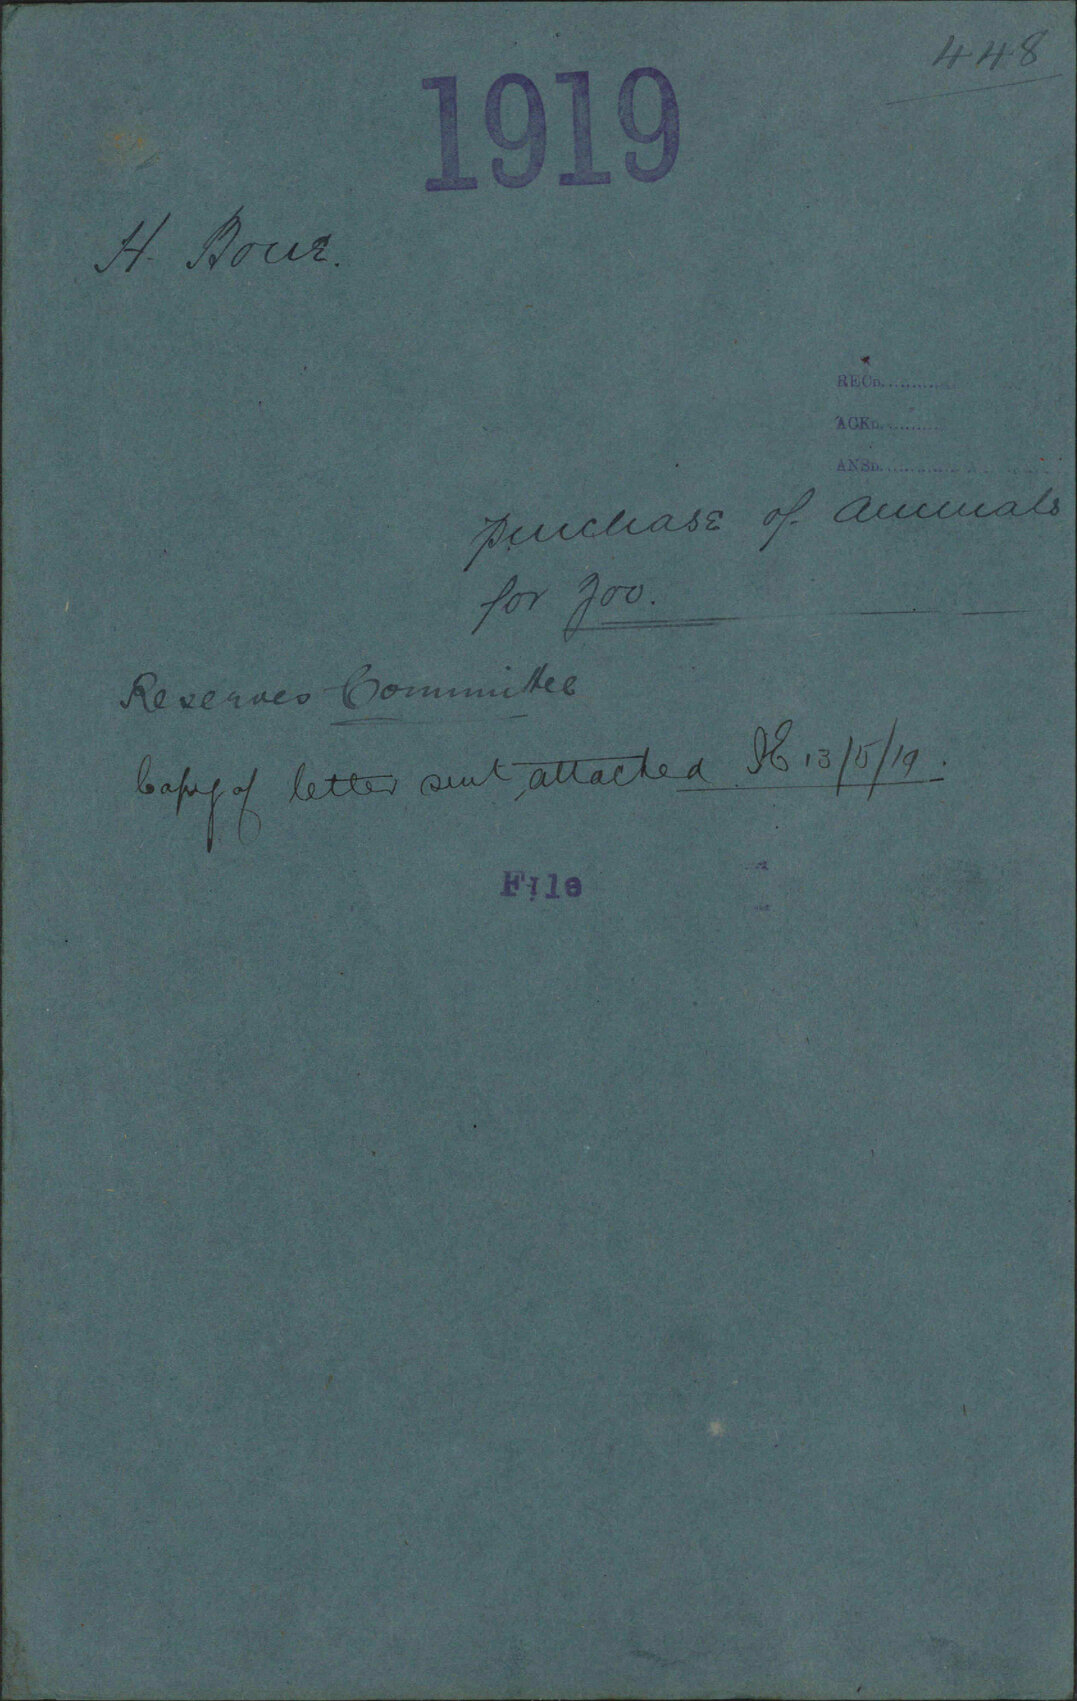 448
1919
H. Bowe.
RECD.
ACKD.
ANSD.
purchase of animals
for Zoo.
Reserves Committee
Copy of letter sent attached 13/5/19.
File